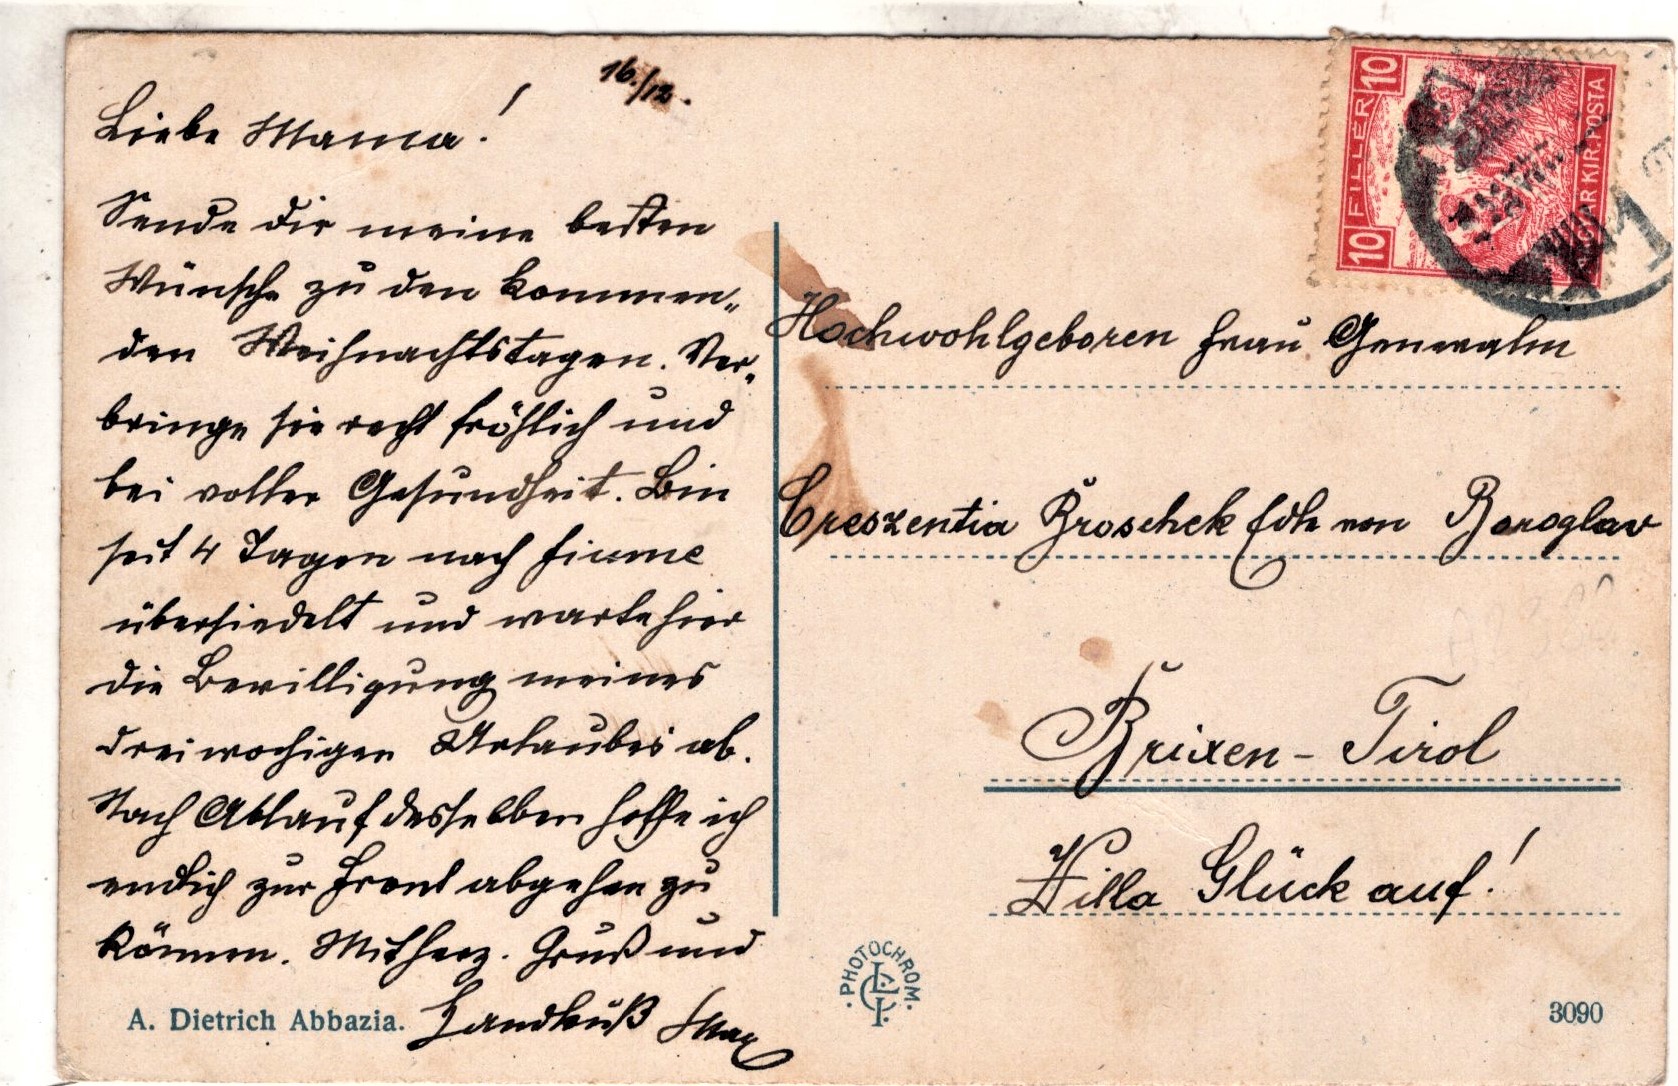 16./12.
Liebe Mama!
Sende dir meine besten
Wünsche zu den kommen„
den Weihnachtstagen. Ver„
bringe sie recht fröhlich und
bei voller Gesundheit. Bin
seit 4 Tagen nach Fiume
übersiedelt und warte hier
die Bewilligung meines
dreiwochigen Urlaubes ab.
Nach Ablauf desselben hoffe ich
endlich zur Front abgehen zu
können. Mit herz. Gruß und
Handkuß Max
A. Dietrich Abbazia.
10 FILLÉR 10
MAGYAR KIR. POSTA
Hochwohlgeboren Frau Generalin
Creszentia Broschek Edle von Boroglav
Brixen - Tirol
Villa Glück auf!
PHOTOCHROM
3090